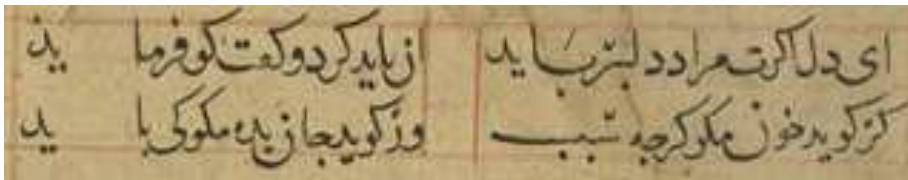 ای دل اکرت مراد دلبر باید ان باید کرد و کفت کو فرماید
کر کوید خون مکو کز جه سبب ور کوید جان بده مکو کی باید